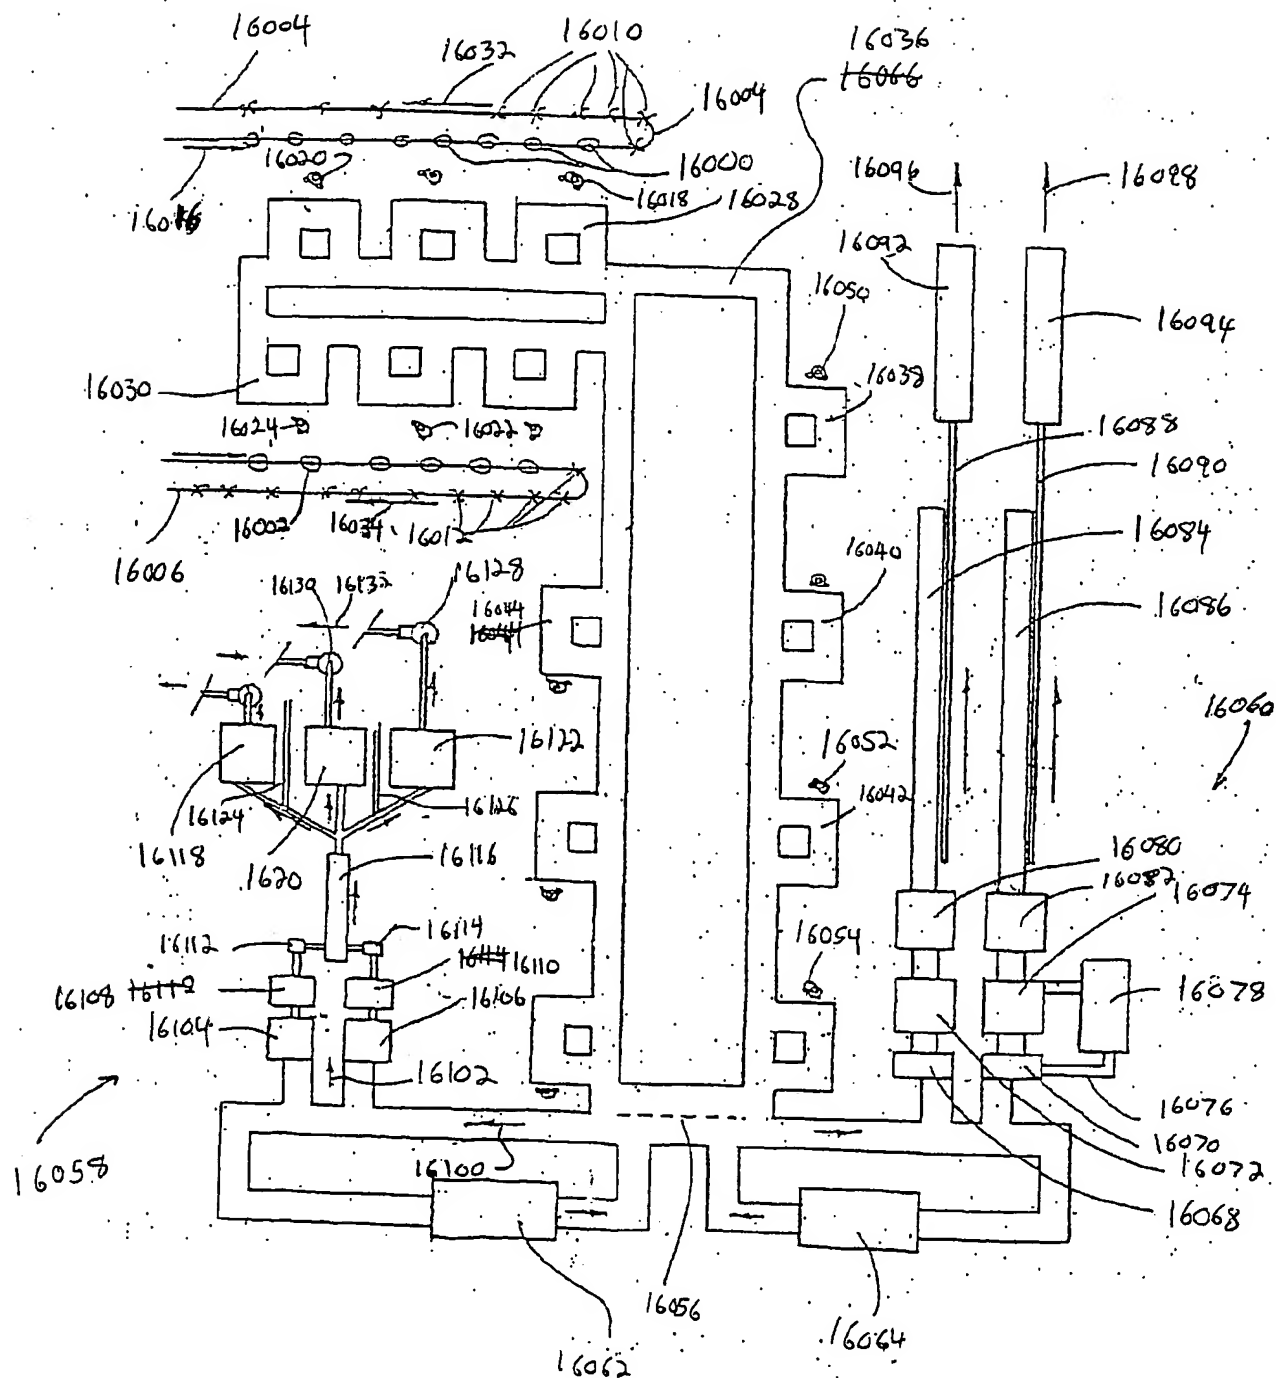 16004
16032
16010
16036
16066
16004
16020
16000
16096
16098
16016
16018
16028
16092
16050
16094
16030
16038
16024
16022
16088
16090
16002
16034
16012
16084
16006
16130
16132
16128
16044
16044
16040
16086
16060
16122
16052
16124
16126
16042
16118
1620
16116
16080
16082
16074
16112
16114
16054
16108
16112
16114
16110
16078
16104
16106
16102
16076
16058
16100
16070
16072
16068
16056
16064
16062